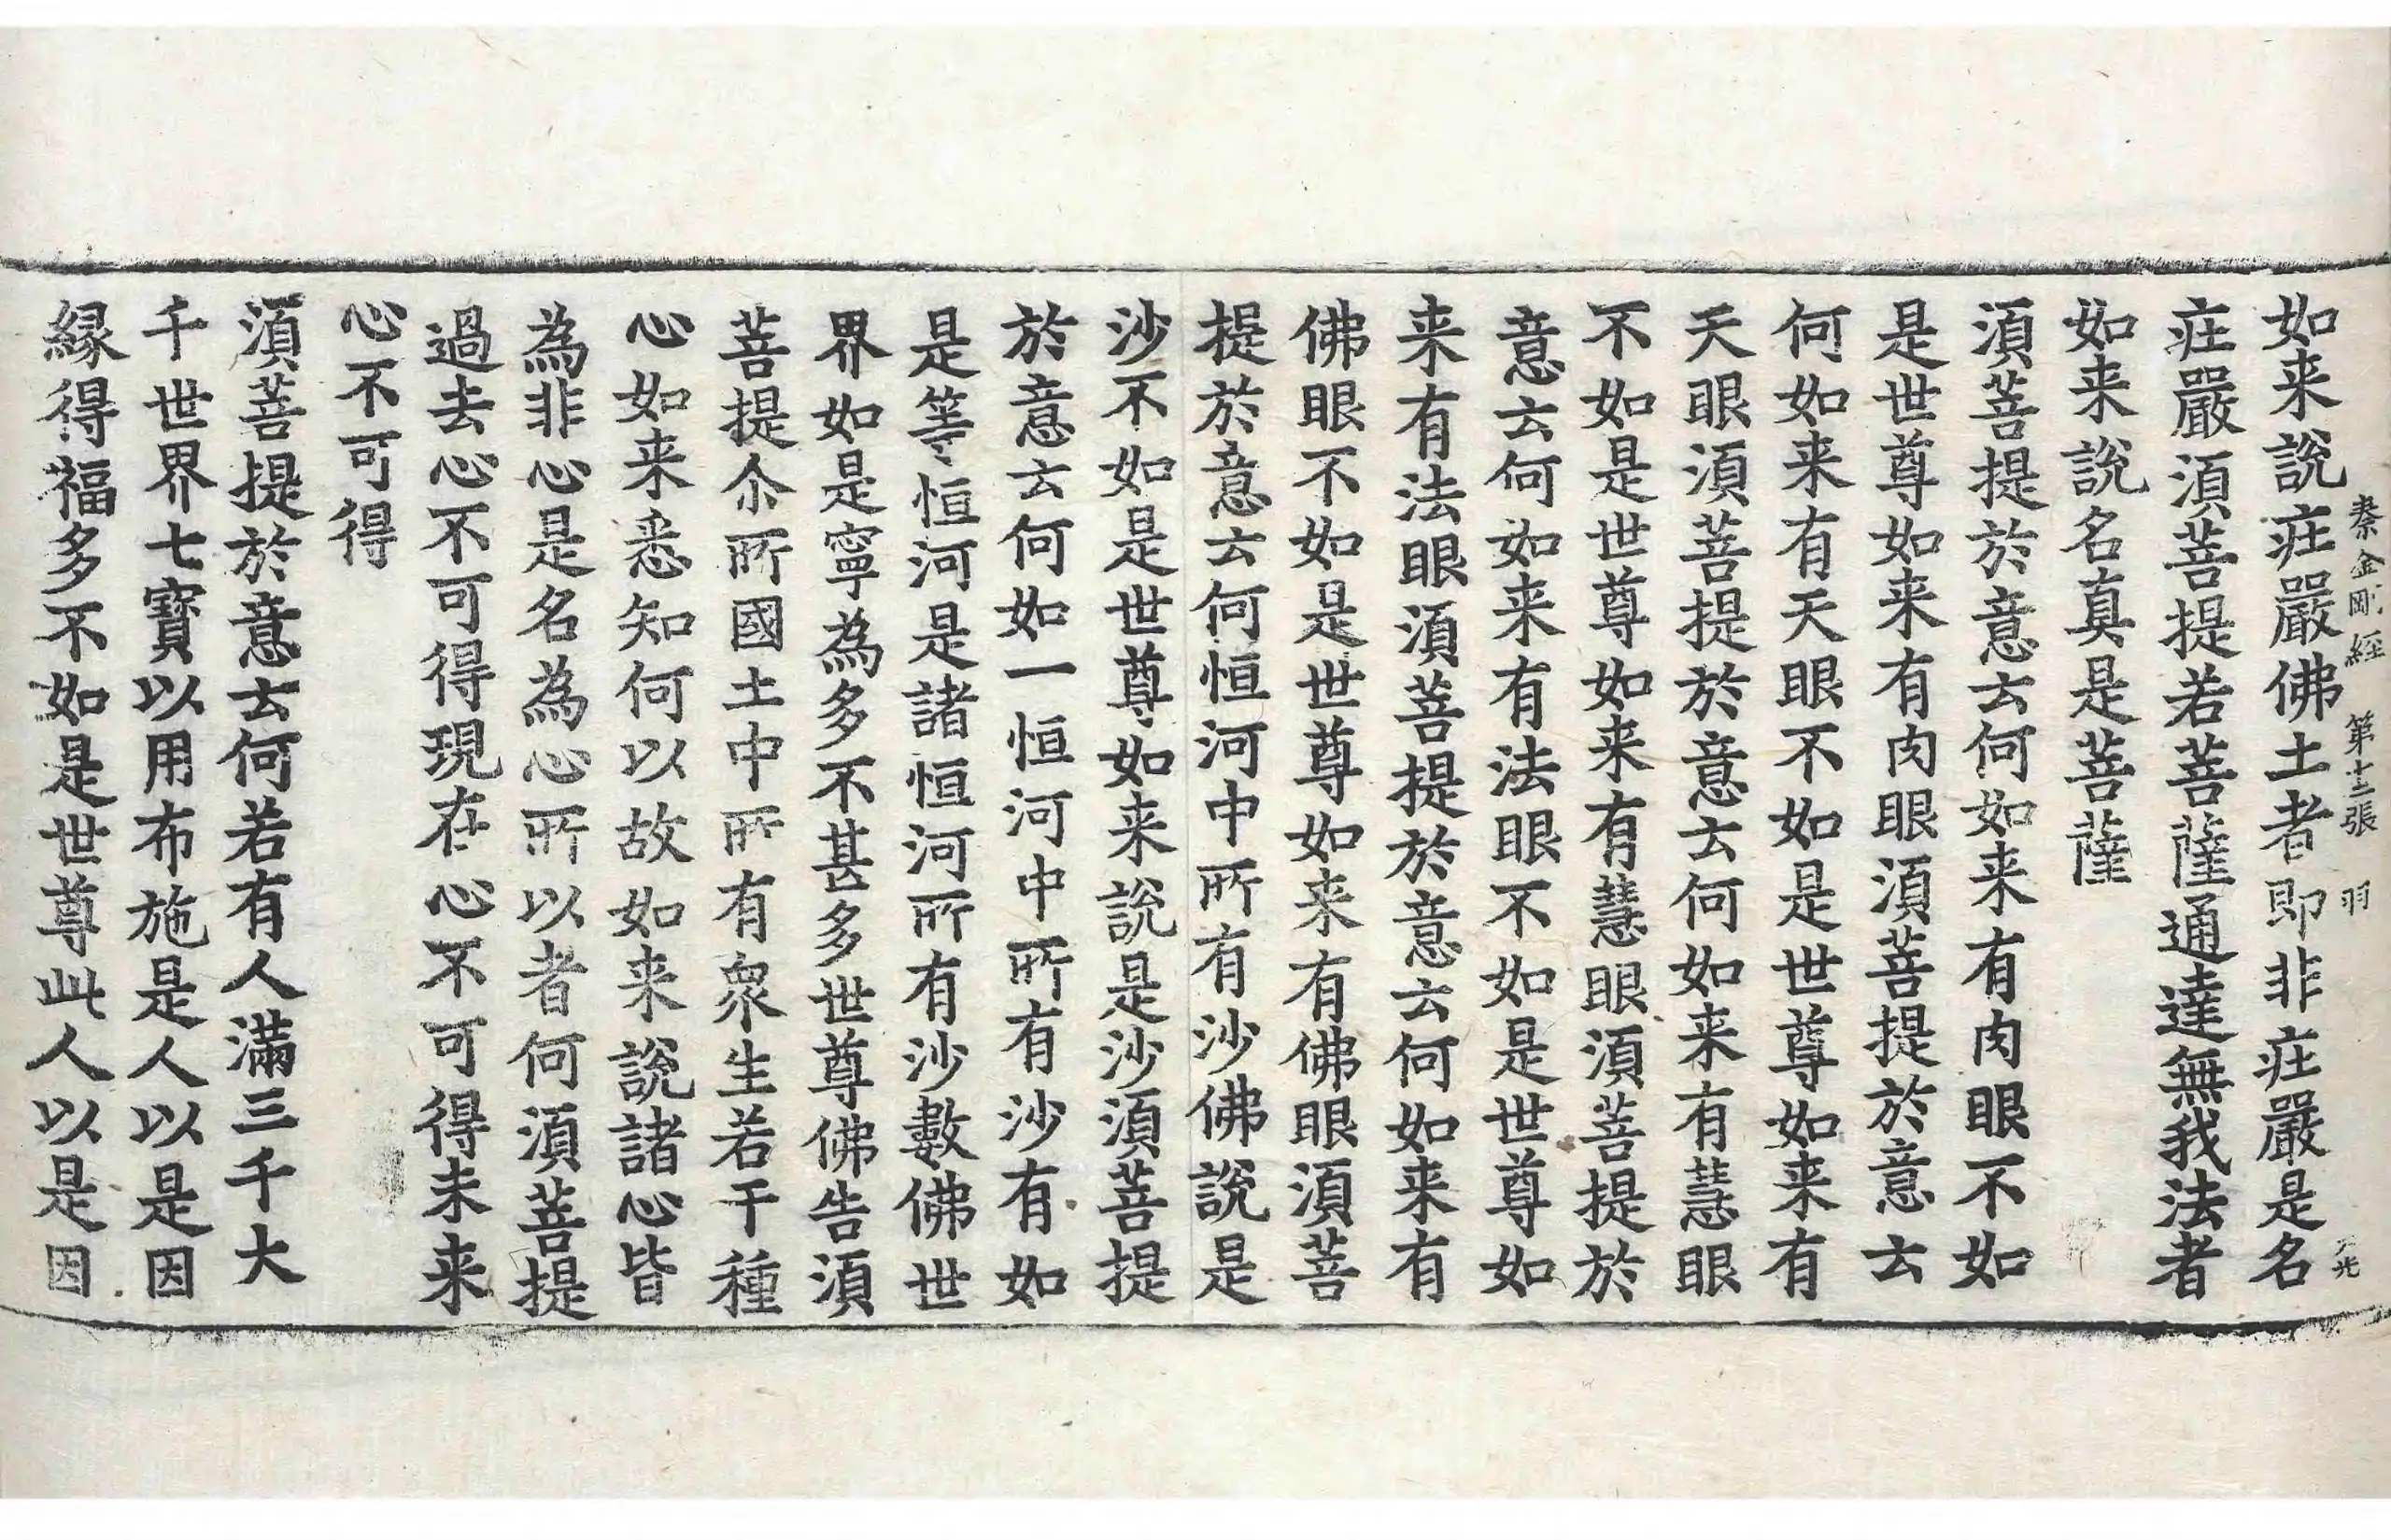 秦金剛經 第十三張 羽
如来說㽵嚴佛土者即非㽵嚴是名
㽵嚴須菩提若菩薩通達無我法者
如来說名真是菩薩
須菩提於意云何如来有肉眼不如
是世尊如来有肉眼須菩提於意云
何如来有天眼不如是世尊如来有
天眼須菩提於意云何如来有慧眼
不如是世尊如来有慧眼須菩提於
意云何如来有法眼不如是世尊如
来有法眼須菩提於意云何如来有
佛眼不如是世尊如来有佛眼須菩
提於意云何恒河中所有沙佛說是
沙不如是世尊如来說是沙須菩提
於意云何如一恒河中所有沙有如
是等恒河是諸恒河所有沙數佛世
界如是寧為多不甚多世尊佛告須
菩提尒所國土中所有衆生若干種
心如来悉知何以故如来說諸心皆
為非心是名為心所以者何須菩提
過去心不可得現在心不可得未来
心不可得
須菩提於意云何若有人滿三千大
千世界七寶以用布施是人以是因
縁得福多不如是世尊此人以是因